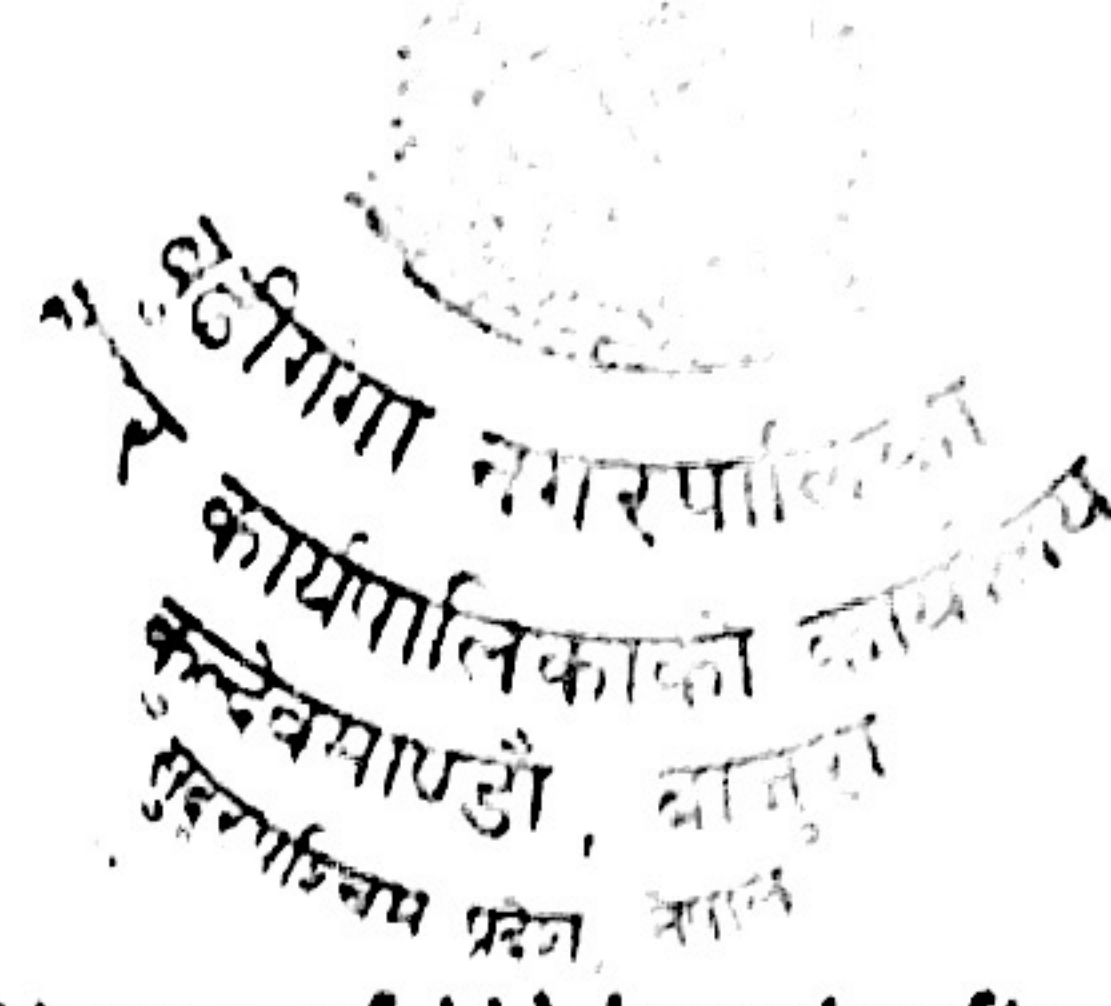 बुढीगंगा नगरपालिका
कार्यपालिकाको कार्यालय
कुल्देवमाण्डौ, बाजुरा
सुदूरपश्चिम प्रदेश नेपाल